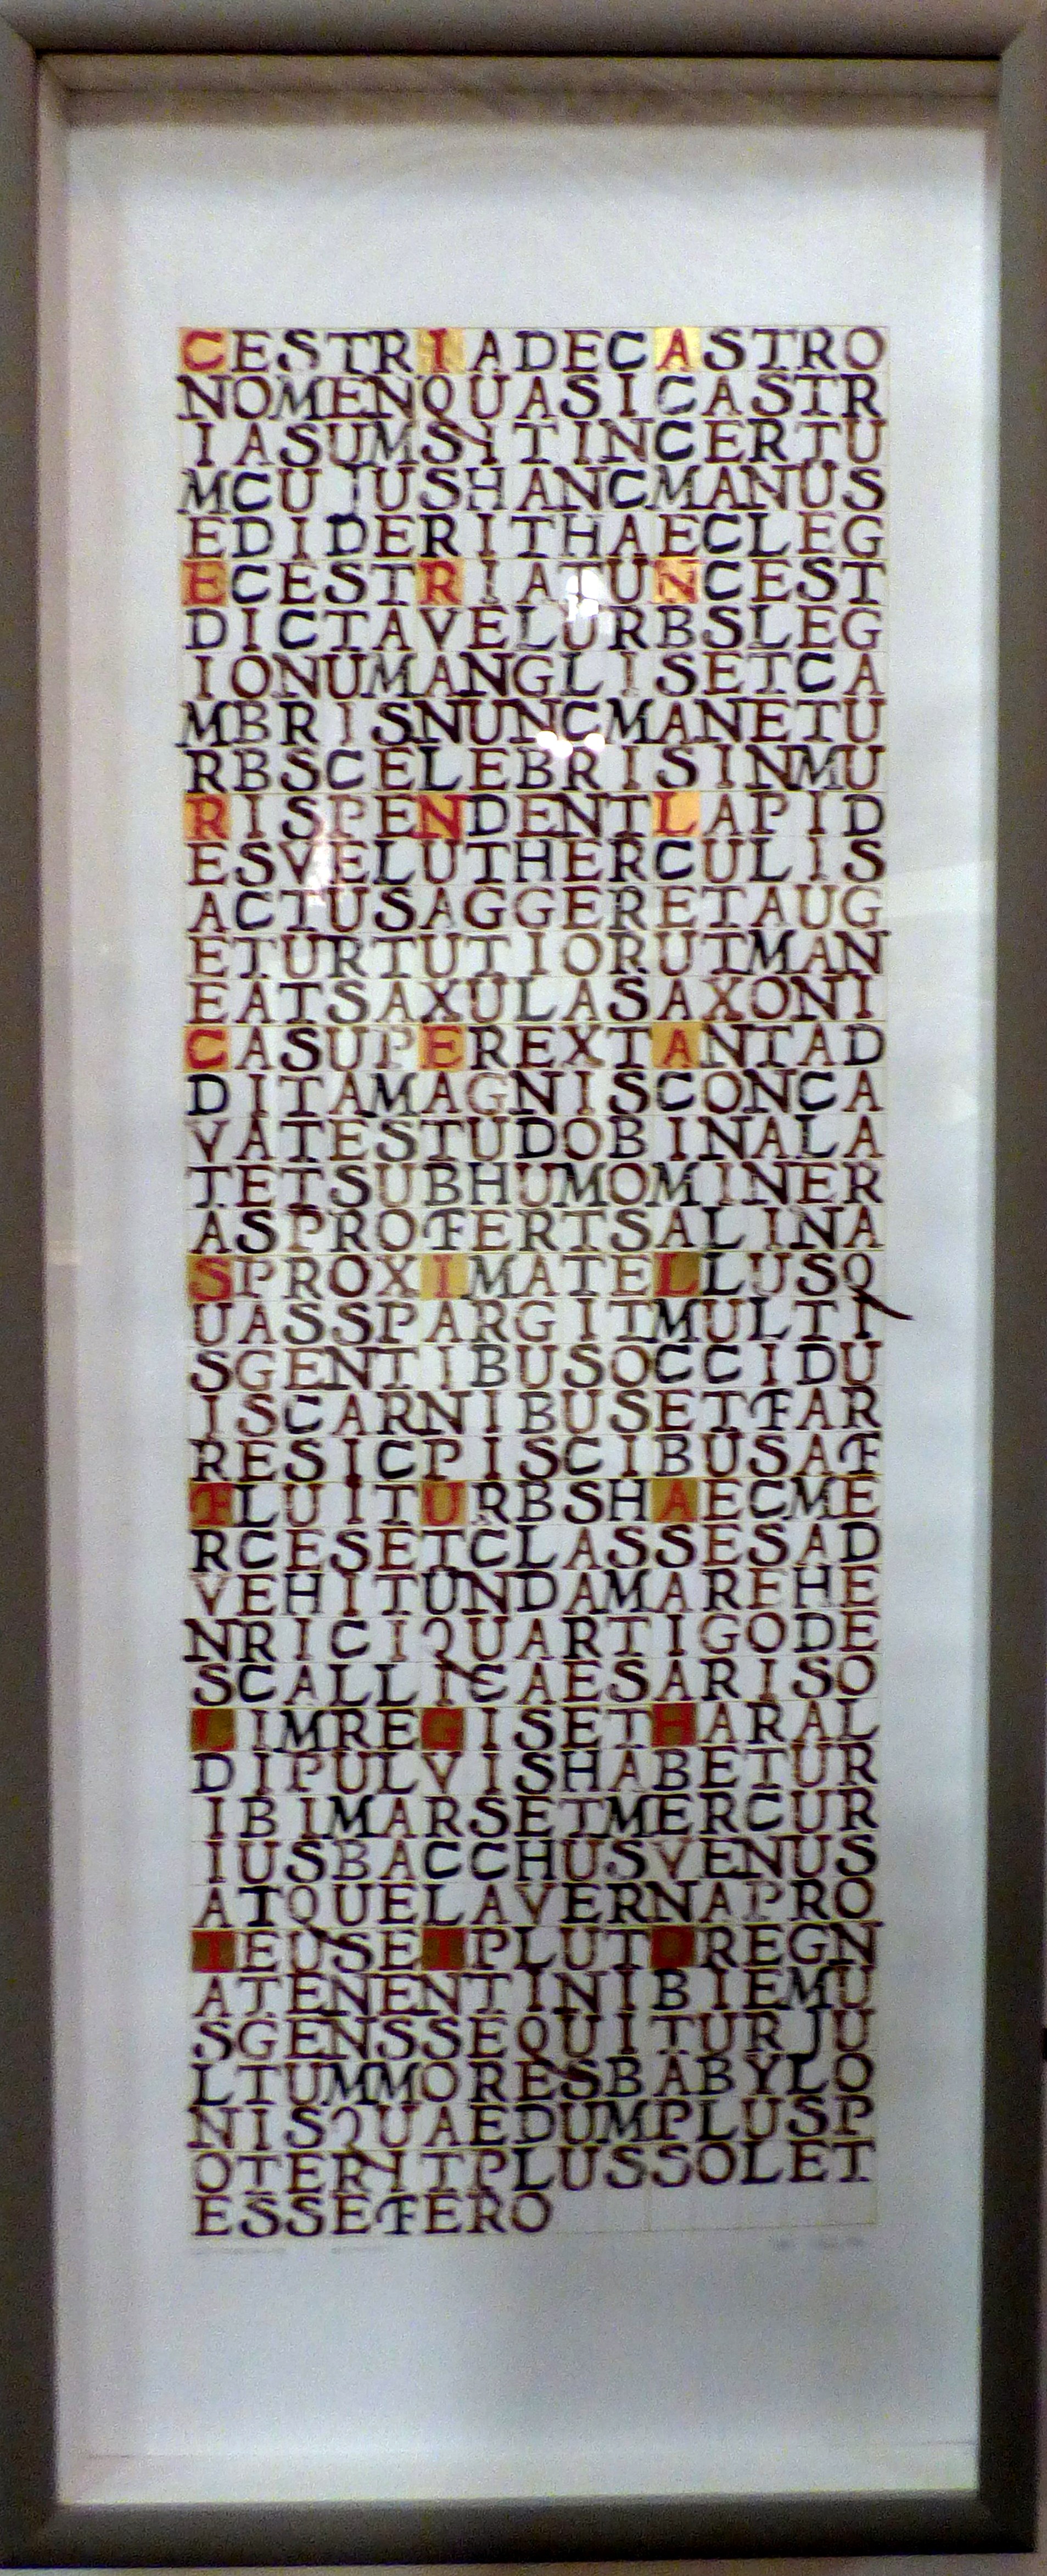 CESTRIADECASTRO
NOMENQUASICASTR
IASUMSITINCERTU
MCUJUSHANCMANUS
EDIDERITHAECLEG
ECESTRIATUNCEST
DICTAVELURBSLEG
IONUMANGLISETCA
MBRISNUNCMANETU
RBSCELEBRISINMU
RISPENDENTLAPID
ESVELUTHERCULIS
ACTUSAGGERETAUG
ETURTUTIORUTMAN
EATSAXULASAXONI
CASUPEREXTANTAD
DITAMAGNISCONCA
VATESTUDOBINALA
TETSUBHUMOMINER
ASPROFERTSALINA
SPROXIMATELLUSQ
UASSPARGITMULTI
SGENTIBUSOCCIDU
ISCARNIBUSETFAR
RESICPISCIBUSAF
FLUITURBSHAECME
RCESETCLASSESAD
VEHITUNDAMAREHE
NRICIQUARTIGODE
SCALLICAESARISO
LIMREGISETHARAL
DIPULVISHABETUR
IBIMARSETMERCUR
IUSBACCHUSVENUS
ATQUELAVERNAPRO
TEUSETPLUTOREGN
ATENENTINIBIEMU
SGENSSEQUITURJU
LTUMMORESBABYLO
NISQUAEDUMPLUSP
OTERITPLUSSOLET
ESSEFERO